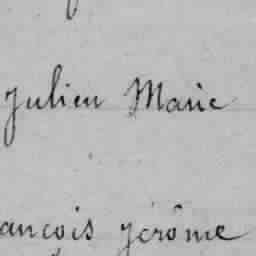 Julien Marie
ançois jérôme